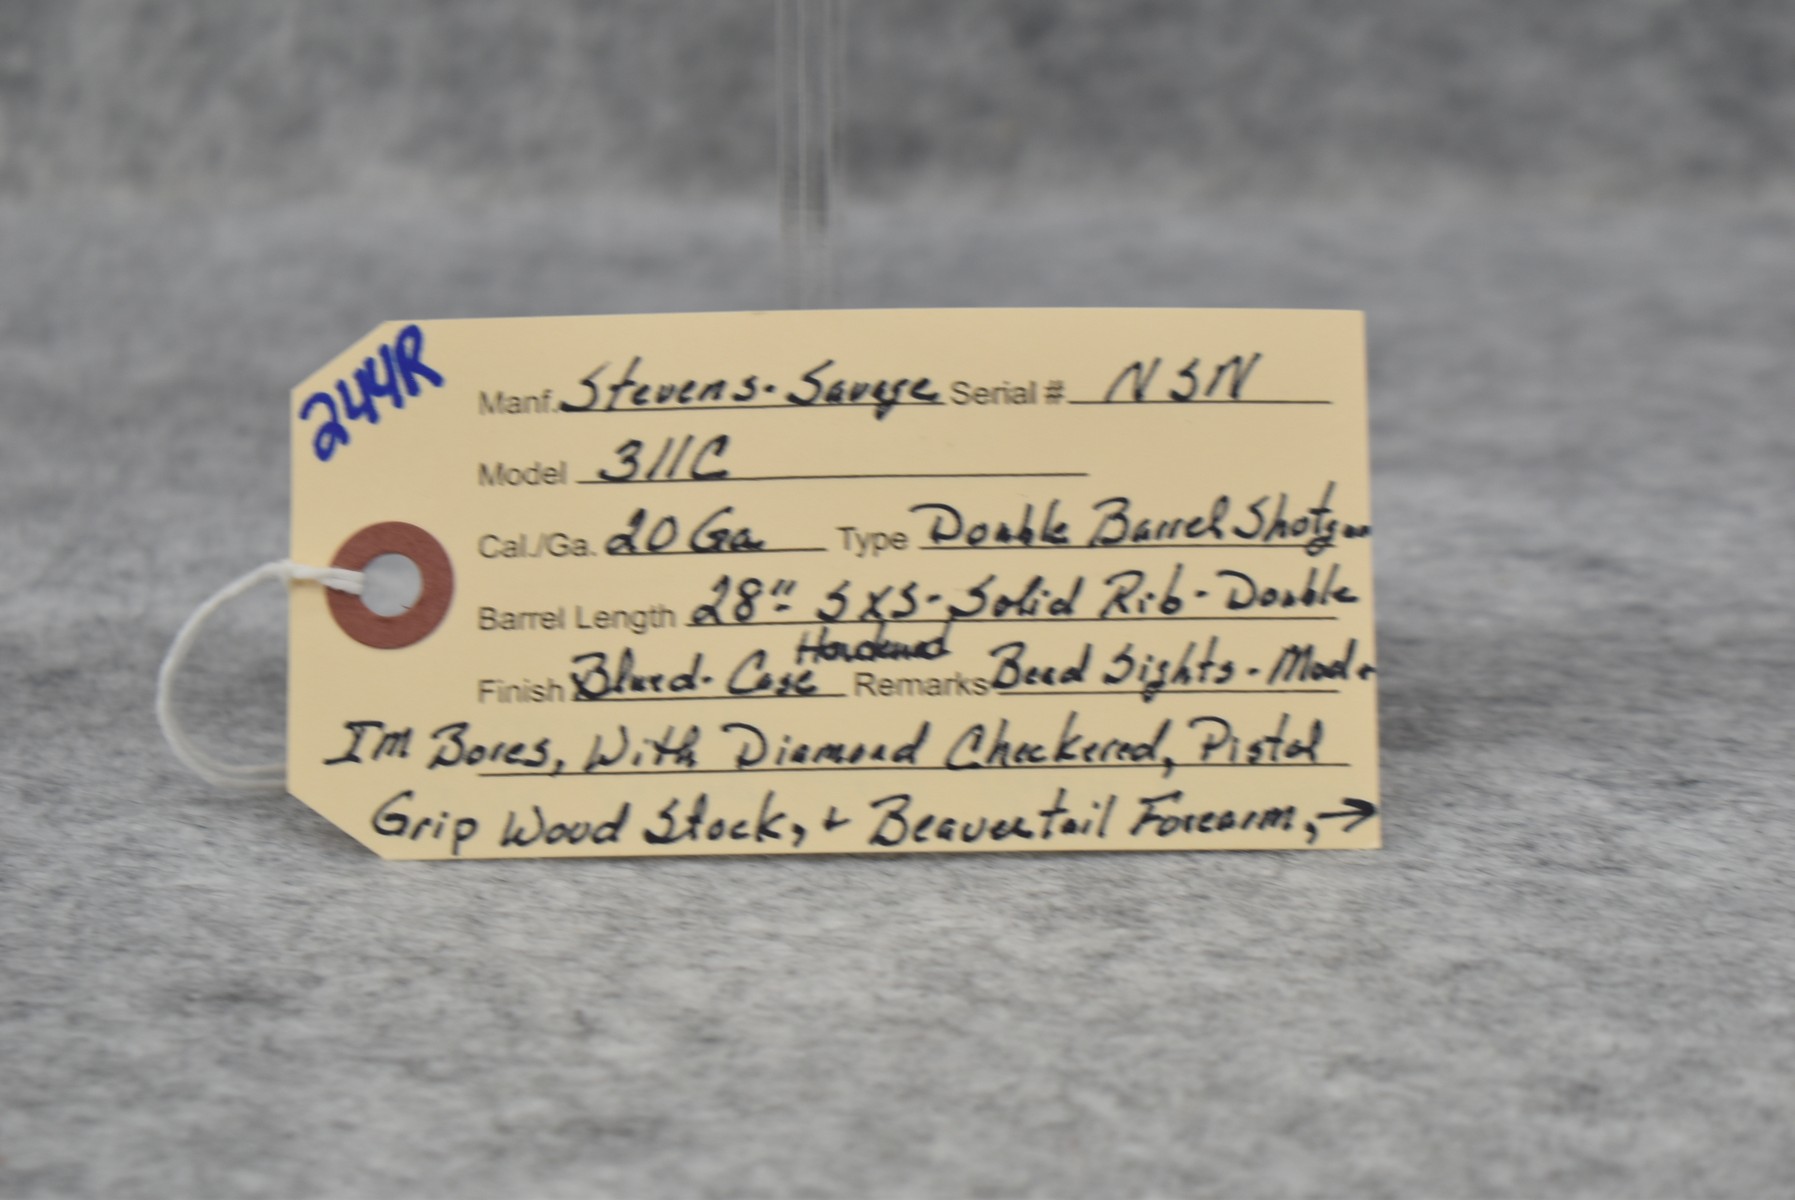 244R
Manf. Stevens-Savage Serial # NSN
Model 311C
Cal./Ga. 20 Ga Type Double Barrel Shotgun
Barrel Length 28" SXS-Solid Rib-Double
Hardened
Finish Blued-Case Remarks Bead Sights-Mod+
IM Bores, With Diamond Checkered, Pistol
Grip Wood Stock, + Beavertail Forearm, →